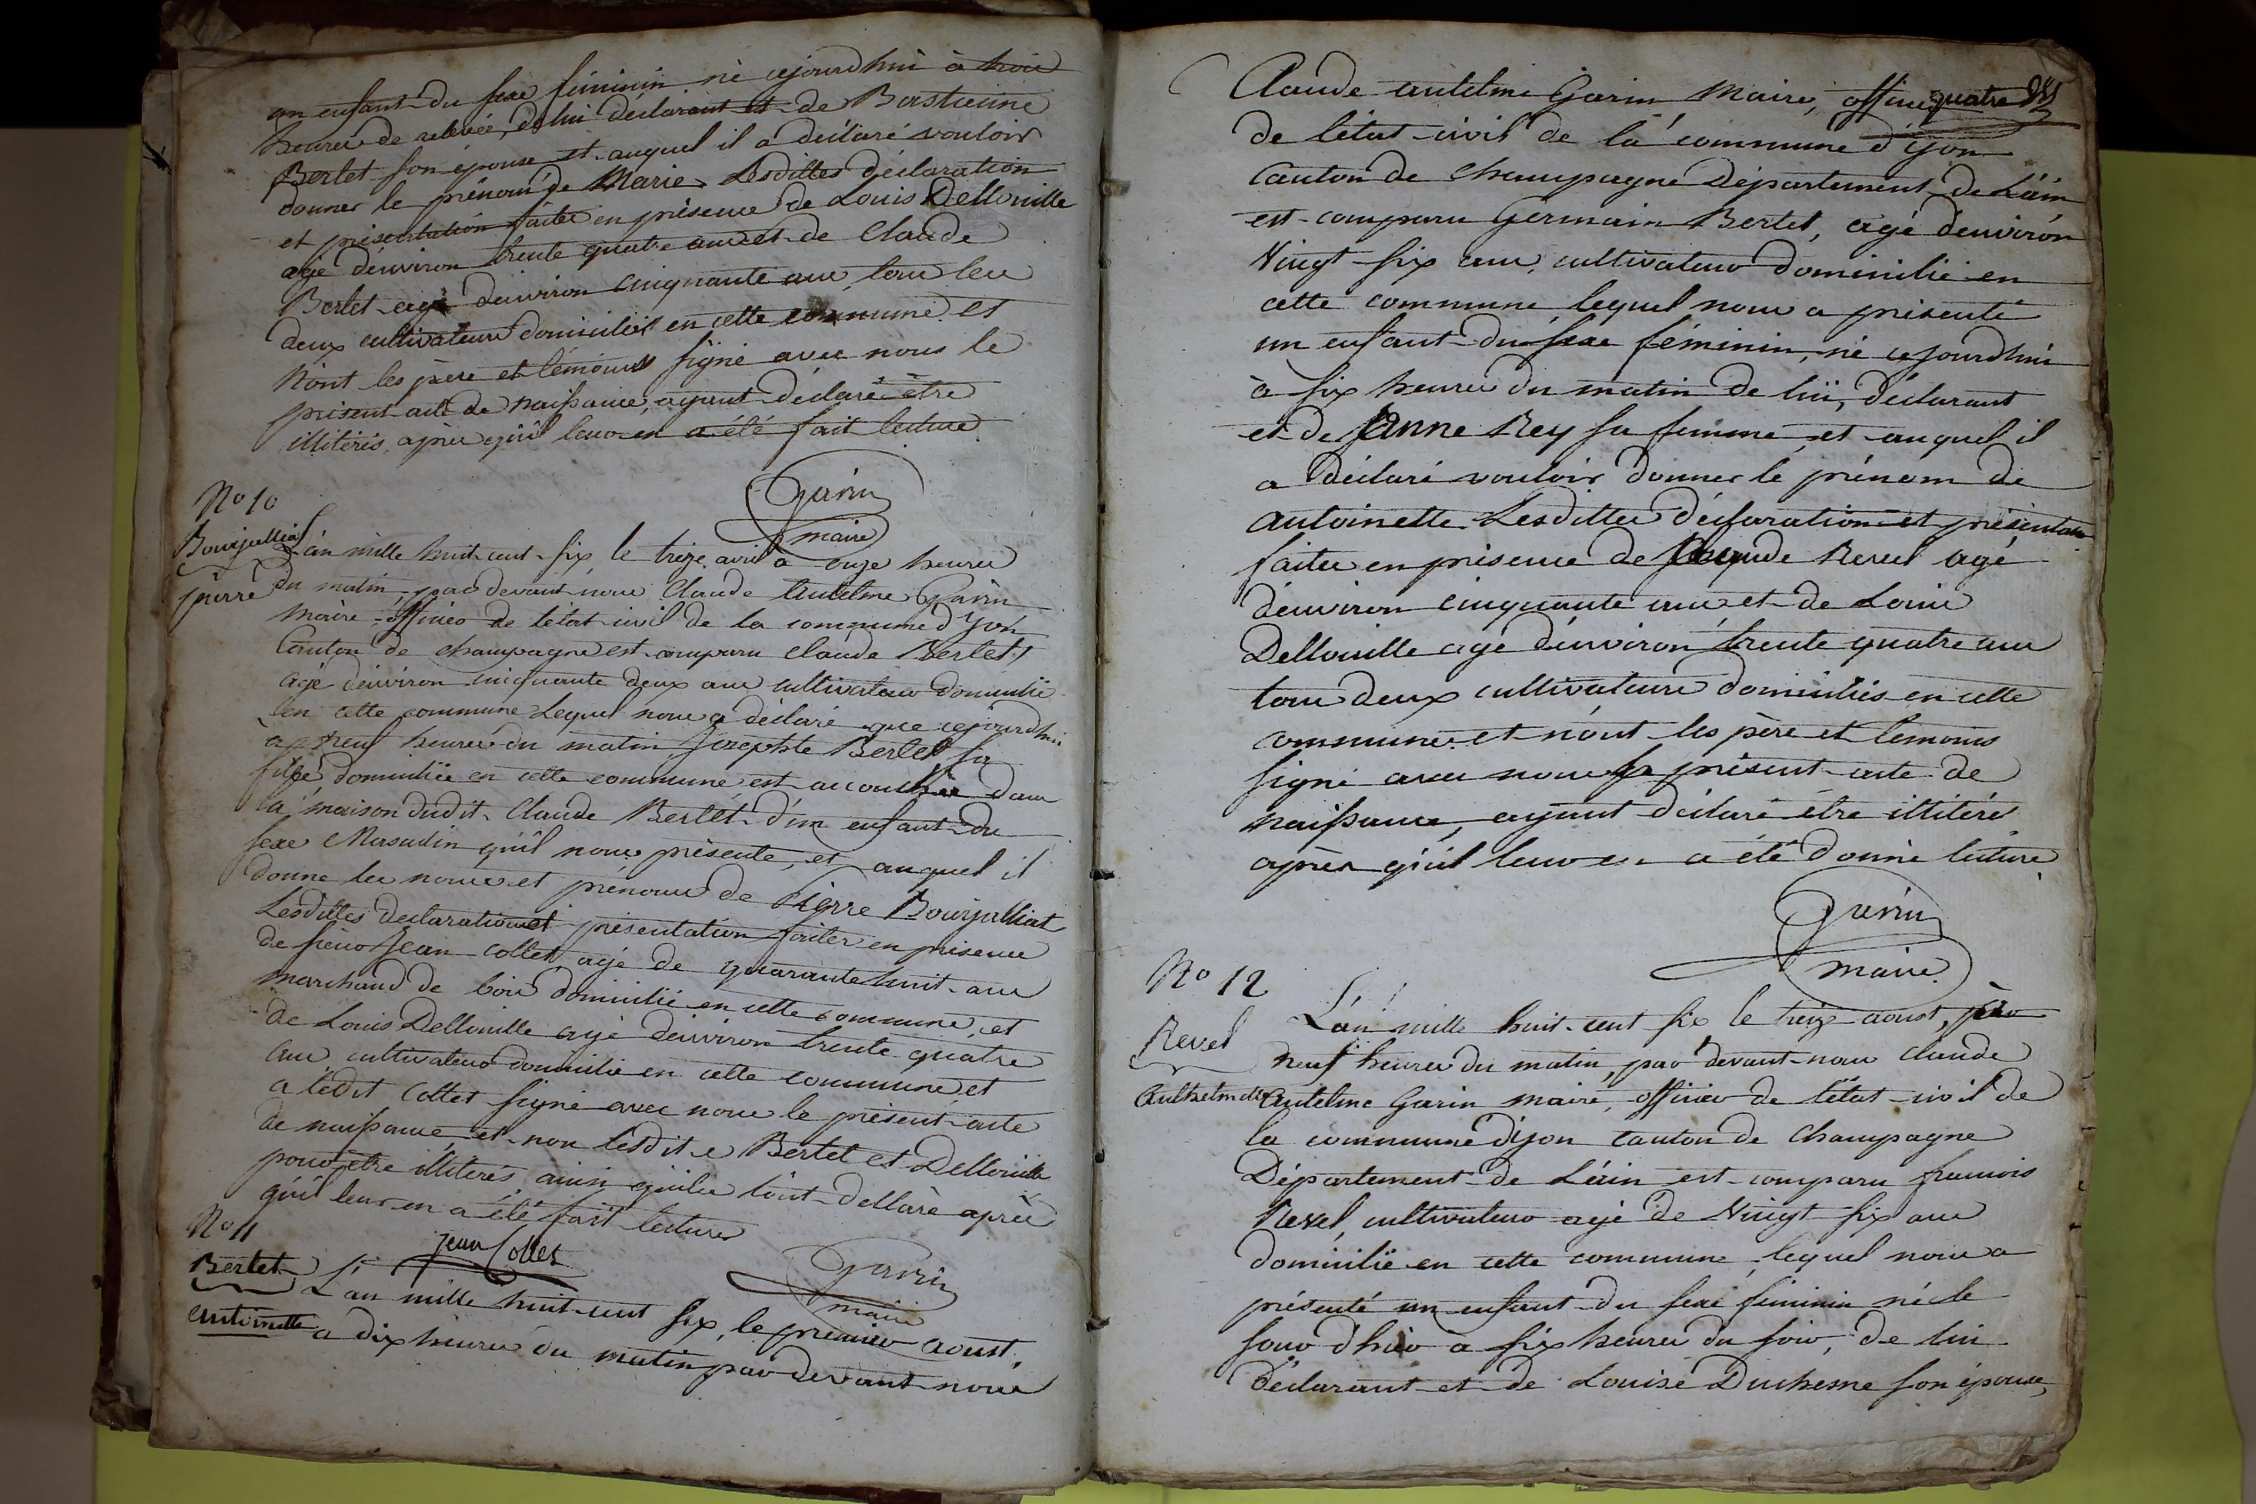 un enfant du sexe féminin né cejourdhui à trois
heures de relevée, de lui déclarant et de Bastienne
Bertet son épouse et auquel il a déclaré vouloir
donner le prénom de Marie. Lesdittes déclaration
et présentation faites en présence de Louis Dellouille
agé d'environ trente quatre ans et de Claude
Bertet agé d'environ cinquante ans, tous les
deux cultivateurs domiciliés en cette commune et
n'ont les père et témoins signé avec nous le
présent acte de naissance, ayant déclaré être
illitérés, après qu'il leur en a été fait lecture.
Garin
maire
No 10
Bourjalliat
pierre
L'an mille huit cent six, le treize avril à onze heures
du matin, par devant nous Claude Antelme Garin
maire officier de l'état civil de la commune d'Yon
Canton de champagne est comparu claude Bertet,
agé d'environ cinquante deux ans cultivateur domicilié
en cette commune Lequel nous a déclaré que cejourdhui
a neuf heures du matin Josephte Bertet sa
fille domiciliée en cette commune est accouchée dans
la maison dudit Claude Bertet d'un enfant du
sexe Masculin qu'il nous présente, et auquel il
donne les noms et prénoms de Pierre Bourjalliat
Lesdittes déclaration et présentation faites en présence
de sieur Jean Collet agé de quarante huit ans
marchand de bois domicilié en cette commune, et
de Louis Dellouille agé d'environ trente quatre
ans cultivateur domicilié en cette commune et
a ledit Collet signé avec nous le présent acte
de naissance, et non lesdits Bertet et Dellouille
pour être illiterés ainsi qu'ils l'ont dellaré après
qu'il leur en a été fait lecture
jean Collet
Garin
maire
No 11
Bertet
antoinette
L'an mille huit cent six, le premier aoust,
a dix heures du matin par devant nous
quatre
Claude antelme Garin Maire, officier
de l'état civil de la commune d'yon
Canton de Champagne Département de L'ain
est comparu Germain Bertet, agé d'environ
Vingt six ans, cultivateur domicilié en
cette commune, lequel nous a présenté
un enfant du sexe féminin, né cejourdhui
à six heures du matin de lui, déclarant
et de Janne Rey sa femme et auquel il
a déclaré vouloir donner le prénom de
antoinette. Lesdittes déclaration et présentation
faites en présence de Revel agé
d'environ cinquante ans et de Louis
Dellouille agé d'environ trente quatre ans
tous deux cultivateurs domiciliés en cette
commune. et n'ont les père et témoins
signé avec nous le présent acte de
naissance, ayant déclaré être illitérés
après qu'il leur en a été donné lecture.
Garin
maire
No 12
Revel
L'an mille huit cent six, le treize aoust,
neuf heures du matin, par devant nous claude
antelme Garin maire, officier de l'état civil de
la commune d'yon canton de Champagne
Département de L'ain est comparu francois
Revel, cultivateur agé de Vingt six ans
domicilié en cette commune, lequel nous a
présenté un enfant du sexe féminin né le
jour d'hier à six heures du soir, de lui
déclarant et de Louise Duchesne son épouse,